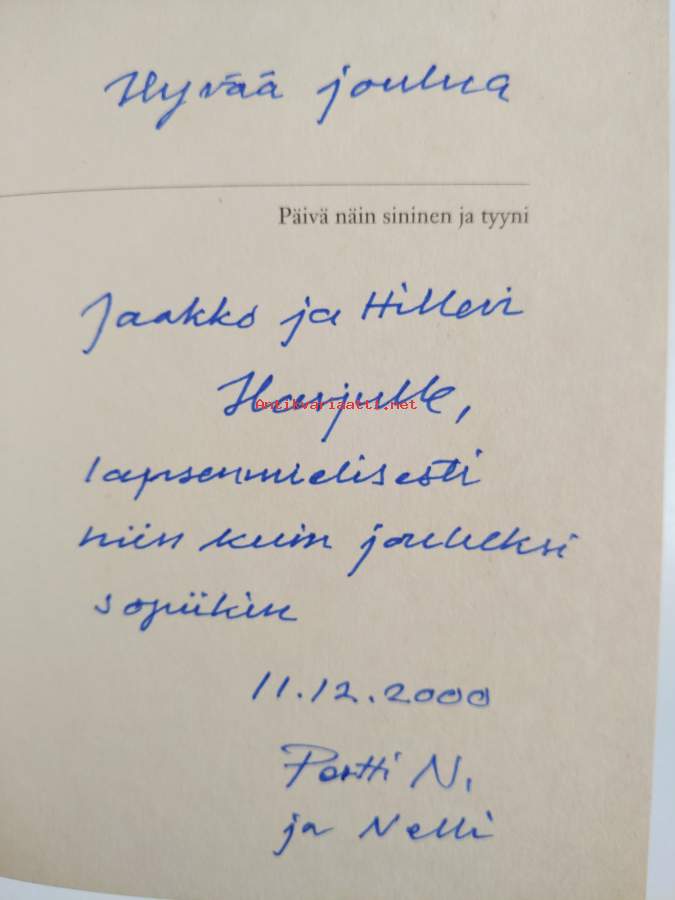 Hyvää joulua
Päivä näin sininen ja tyyni
Jaakko ja Hillevi
Harjulle,
Antikvariaatti.net
lapsenmielisesti
niin kuin jouluksi
sopiikin
11.12.2000
Pertti N.
ja Nelli